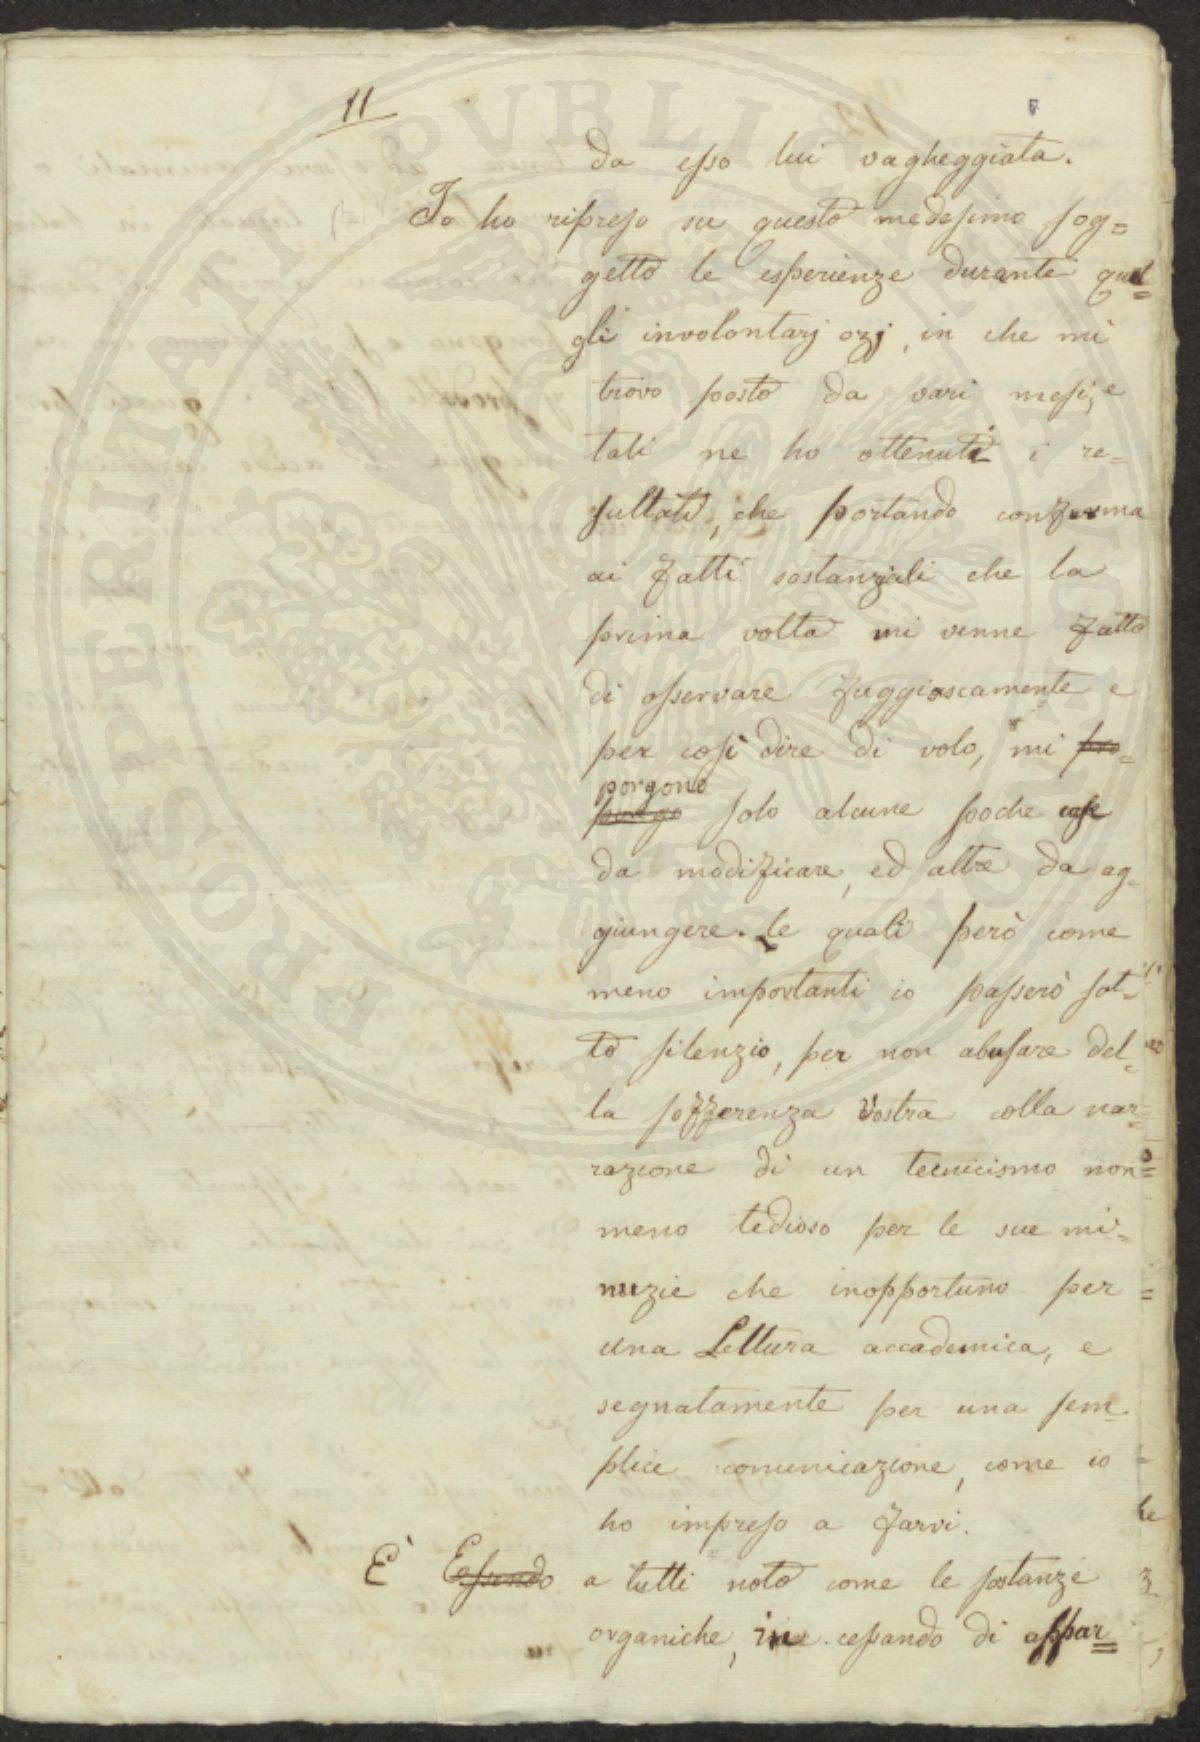 11
da esso lui vagheggiata.
Io ho ripreso su questo medesimo sog=
getto le esperienze durante que=
gli involontarj ozj, in che mi
trovo posto da vari mesi, e
tali ne ho ottenuti i re=
sultati, che portando conferma
ai fatti sostanziali che la
prima volta mi venne fatto
di osservare fuggiascamente e
per così dire di volo, mi pro=
porgono
pongo solo alcune poche cose
da modificare, ed altre da ag=
giungere. Le quali però come
meno importanti io passerò sot=
to silenzio, per non abusare del=
la sofferenza Vostra colla nar=
razione di un tecnicismo non
meno tedioso per le sue mi=
nuzie che inopportuno per
una Lettura accademica, e
segnatamente per una sem=
plice comunicazione, come io
ho impreso a farvi.
È Essendo a tutti noto come le sostanze
organiche, in cessando di appar=
PROSPERITATI PVBLICAE